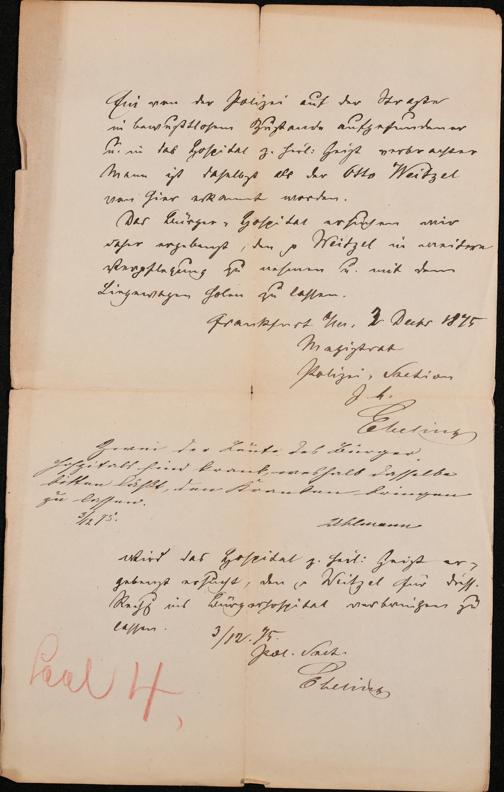 Ein von der Polizei auf der Straße
in bewußtlosem Zustande aufgefundener
u. in das Hospital z. heil: Geist verbrachter
Mann ist daselbst als der Otto Weitzel
von hier erkannt worden.
Das Bürger-Hospital ersuchen wir
daher ergebenst, den p Weitzel in weitere
Verpflegung zu nehmen u. mit dem
Liegewagen holen zu lassen.
Frankfurt a/m. 2 Decbr 1875
Magistrat
Polizei, Section
Ebeling
Zwei der Leute des Bürger
hospitals sind krank, weshalb dasselbe
bitten läßt, den Kranken bringen
zu lassen.
3/12 75.
Uhlmann
Wird das Hospital z. heil: Geist er-
gebenst ersucht, den p Weitzel für diess.
Rechg ins Bürgerhospital verbringen zu
lassen. 3/12. 75.
Pol. Sect.
Ebeling
Saal 4,